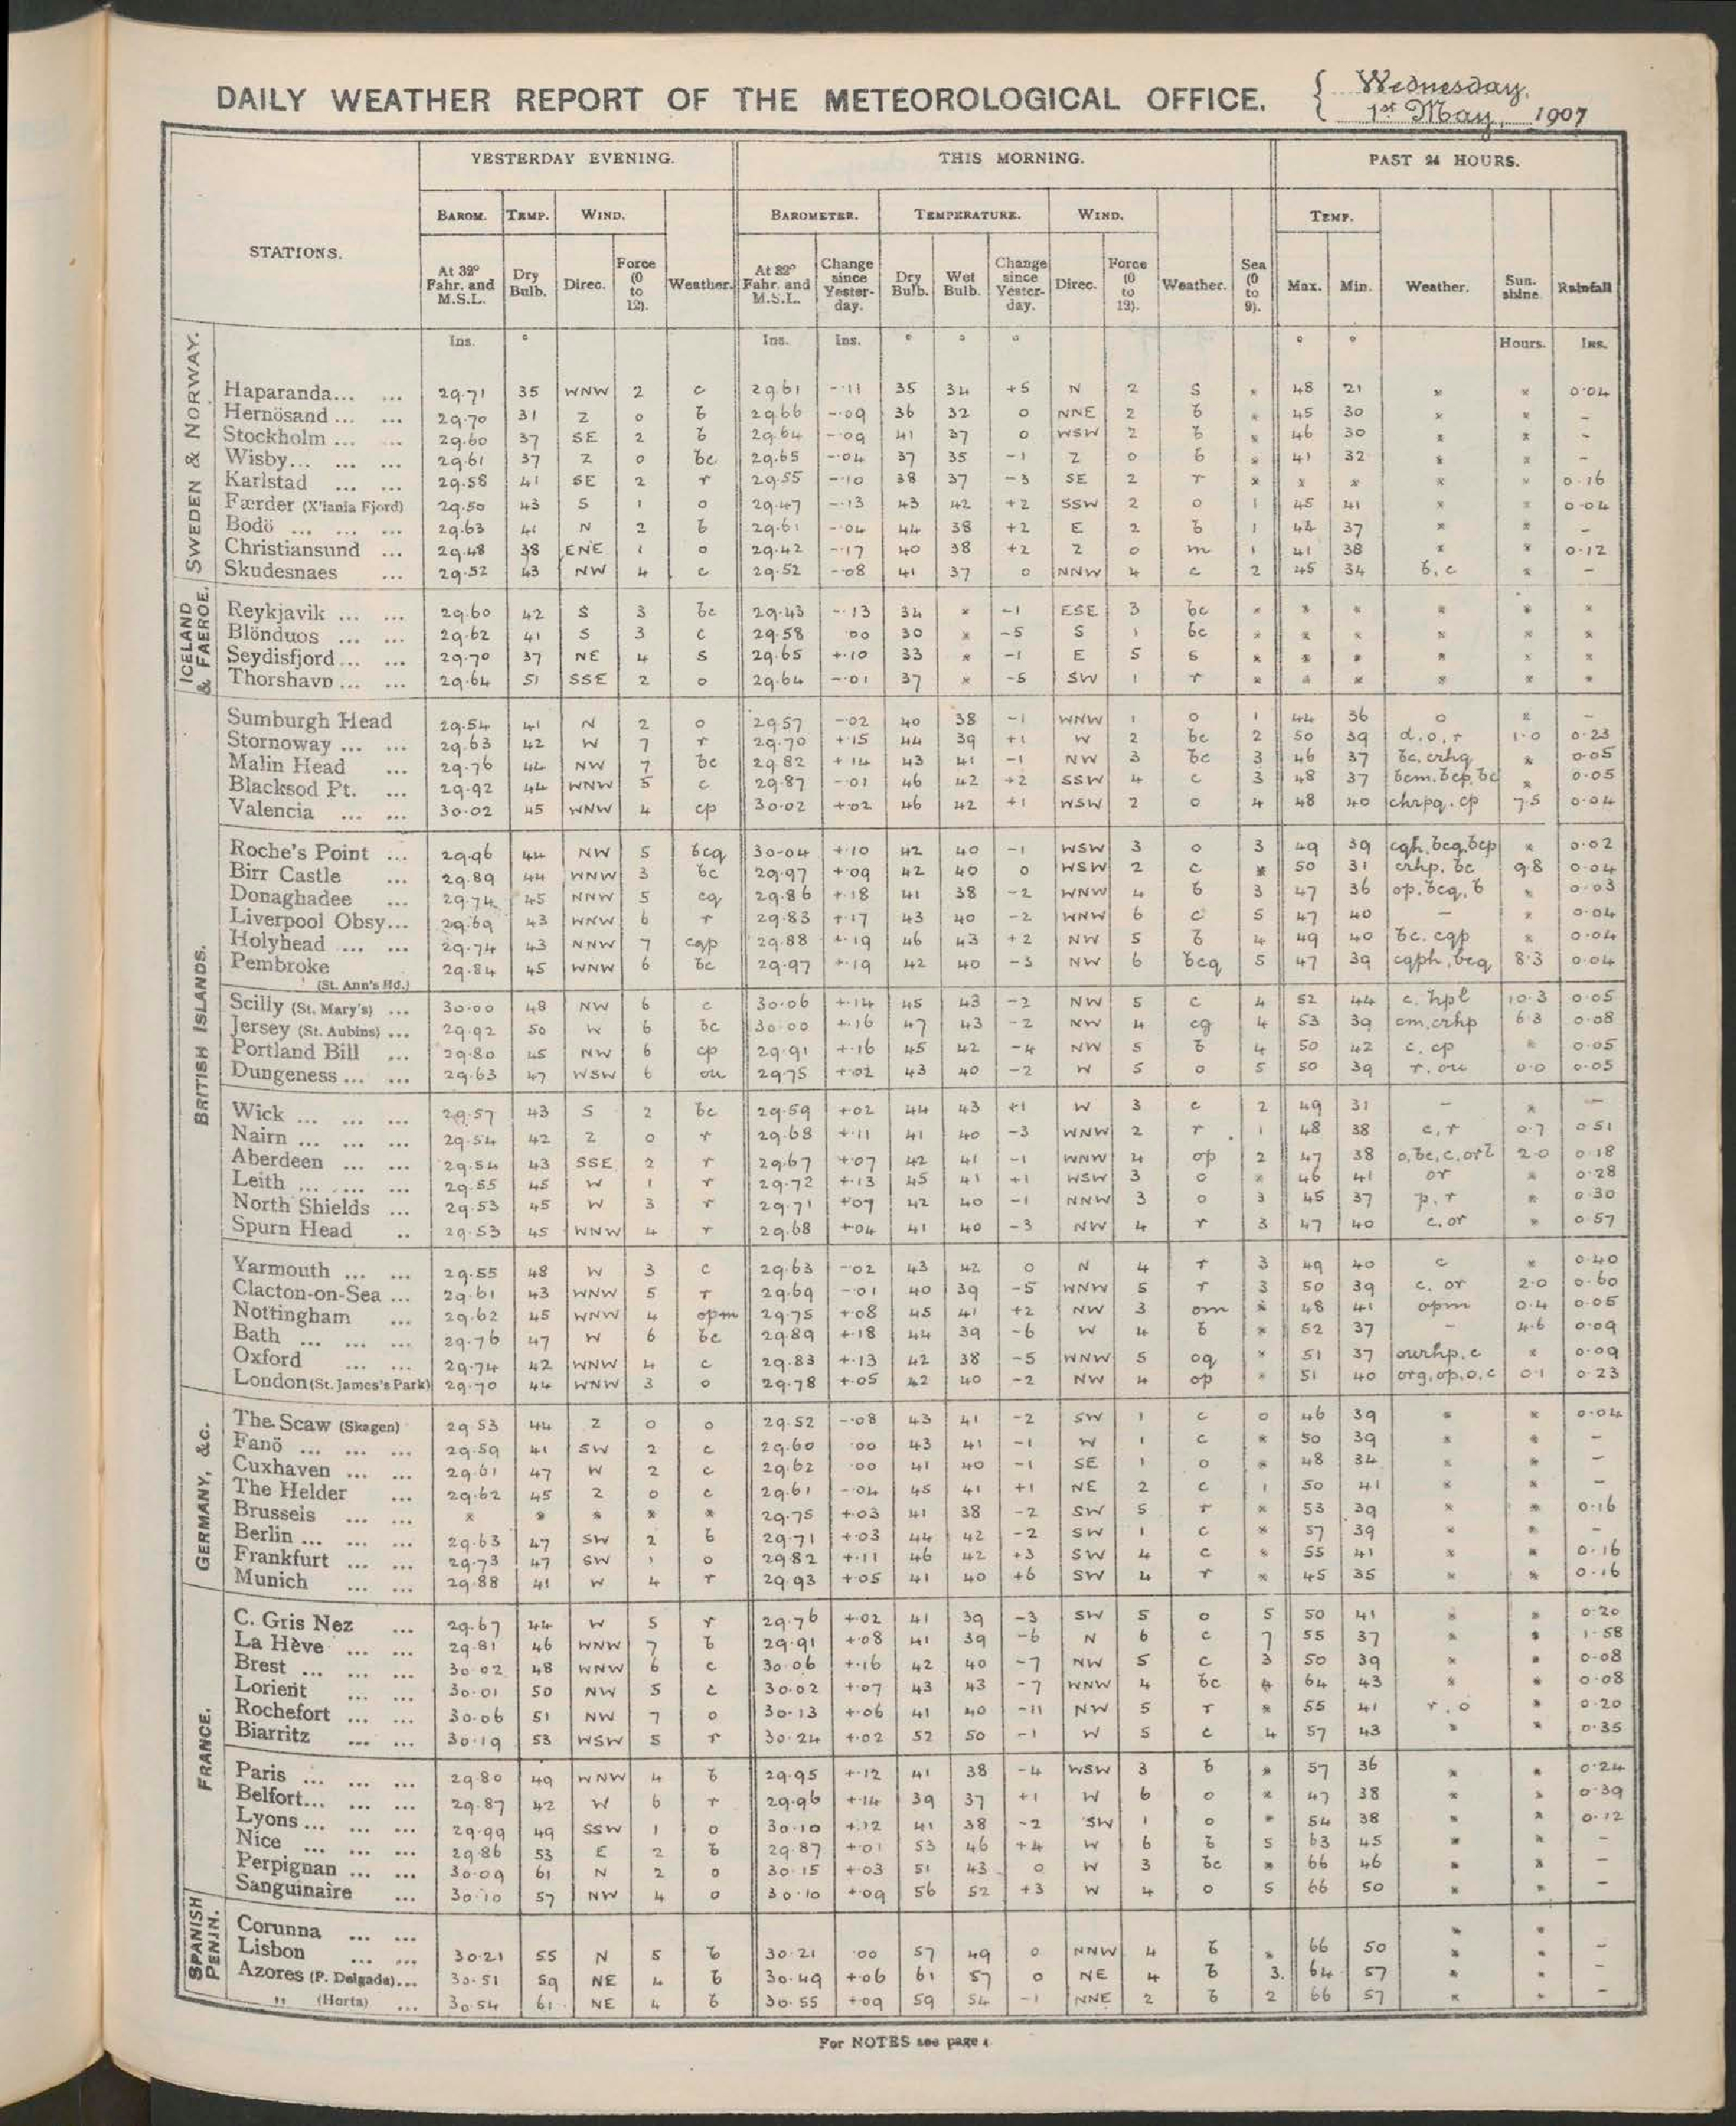 DAILY WEATHER REPORT OF THE METEOROLOGICAL OFFICE. { Wednesday,
1st May, 1907
YESTERDAY EVENING. THIS MORNING. PAST 24 HOURS.
BAROM. TEMP. WIND. BAROMETER. TEMPERATURE. WIND. TEMP.
STATIONS. At 32° Fahr. and M.S.L. Dry Bulb. Direc. Force (0 to 12). Weather. At 32° Fahr. and M.S.L. Change since Yester-day. Dry Bulb. Wet Bulb. Change since Yester-day. Direc. Force (0 to 12). Weather. Sea (0 to 9). Max. Min. Weather. Sun-shine. Rainfall
Ins. ° Ins. Ins. ° ° ° ° ° Hours. Ins.
SWEDEN & NORWAY.
Haparanda... ... 29.71 35 WNW 2 c 29.61 -.11 35 34 +5 N 2 s * 48 21 * * 0.04
Hernösand ... ... 29.70 31 Z 0 b 29.66 -.09 36 32 0 NNE 2 b * 45 30 * * -
Stockholm ... ... 29.60 37 SE 2 b 29.64 -.09 41 37 0 WSW 2 b * 46 30 * * -
Wisby... ... ... 29.61 37 Z 0 bc 29.65 -.04 37 35 -1 Z 0 b * 41 32 * * -
Karlstad ... ... 29.58 41 SE 2 r 29.55 -.10 38 37 -3 SE 2 r * * * * * 0.16
Færder (X'iania Fjord) 29.50 43 S 1 o 29.47 -.13 43 42 +2 SSW 2 o 1 45 41 * * 0.04
Bodö ... ... ... 29.63 41 N 2 b 29.61 -.04 44 38 +2 E 2 b 1 44 37 * * -
Christiansund ... 29.48 38 ENE 1 o 29.42 -.17 40 38 +2 Z 0 m 1 41 38 * * 0.12
Skudesnaes ... 29.52 43 NW 4 c 29.52 -.08 41 37 0 NNW 4 c 2 45 34 b, c * -
ICELAND & FAEROE.
Reykjavik ... ... 29.60 42 S 3 bc 29.43 -.13 34 * -1 ESE 3 bc * * * * * *
Blönduos ... ... 29.62 41 S 3 c 29.58 .00 30 * -5 S 1 bc * * * * * *
Seydisfjord ... ... 29.70 37 NE 4 s 29.65 +.10 33 * -1 E 5 s * * * * * *
Thorshavn ... ... 29.64 51 SSE 2 o 29.64 -.01 37 * -5 SW 1 r * * * * * *
BRITISH ISLANDS.
Sumburgh Head 29.54 41 N 2 o 29.57 -.02 40 38 -1 WNW 1 o 1 44 36 o * -
Stornoway ... ... 29.63 42 W 7 r 29.70 +.15 44 39 +1 W 2 bc 2 50 39 d.o,r 1.0 0.23
Malin Head ... 29.76 44 NW 7 bc 29.82 +.14 43 41 -1 NW 3 bc 3 46 37 bc, crhq * 0.05
Blacksod Pt. ... 29.92 44 WNW 5 c 29.87 -.01 46 42 +2 SSW 4 c 3 48 37 bcm.bcp,bc * 0.05
Valencia ... ... 30.02 45 WNW 4 cp 30.02 +.02 46 42 +1 WSW 2 o 4 48 40 chrpq.cp 7.5 0.04
Roche's Point ... 29.96 44 NW 5 bcq 30.04 +.10 42 40 -1 WSW 3 o 3 49 39 cqh,bcq,bcp * 0.02
Birr Castle ... 29.89 44 WNW 3 bc 29.97 +.09 42 40 0 WSW 2 c * 50 31 crhp, bc 9.8 0.04
Donaghadee ... 29.74 45 NNW 5 cq 29.86 +.18 41 38 -2 WNW 4 b 3 47 36 op, bcq, b * 0.03
Liverpool Obsy... 29.69 43 WNW 6 r 29.83 +.17 43 40 -2 WNW 6 c 5 47 40 - * 0.04
Holyhead ... ... 29.74 43 NNW 7 cqp 29.88 +.19 46 43 +2 NW 5 b 4 49 40 bc. cqp * 0.04
Pembroke (St. Ann's Hd.) 29.84 45 WNW 6 bc 29.97 +.19 42 40 -3 NW 6 bcq 5 47 39 cqph, bcq 8.3 0.04
Scilly (St. Mary's) ... 30.00 48 NW 6 c 30.06 +.14 45 43 -2 NW 5 c 4 52 44 c. hpl 10.3 0.05
Jersey (St. Aubins) ... 29.92 50 W 6 bc 30.00 +.16 47 43 -2 NW 4 cg 4 53 39 cm, crhp 6.3 0.08
Portland Bill ... 29.80 45 NW 6 cp 29.91 +.16 45 42 -4 NW 5 b 4 50 42 c. cp * 0.05
Dungeness ... ... 29.63 47 WSW 6 ou 29.75 +.02 43 40 -2 W 5 o 5 50 39 r, ou 0.0 0.05
Wick ... ... ... 29.57 43 S 2 bc 29.59 +.02 44 43 +1 W 3 c 2 49 31 - * -
Nairn ... ... ... 29.54 42 Z 0 r 29.68 +.11 41 40 -3 WNW 2 r 1 48 38 c, r 0.7 0.51
Aberdeen ... ... 29.54 43 SSE 2 r 29.67 +.07 42 41 -1 WNW 4 op 2 47 38 o, bc, c, orl 2.0 0.18
Leith ... ... ... 29.55 45 W 1 r 29.72 +.13 45 41 +1 WSW 3 o * 46 41 or * 0.28
North Shields ... 29.53 45 W 3 r 29.71 +.07 42 40 -1 NNW 3 o 3 45 37 p, r * 0.30
Spurn Head .. 29.53 45 WNW 4 r 29.68 +.04 41 40 -3 NW 4 r 3 47 40 c, or * 0.57
Yarmouth ... ... 29.55 48 W 3 c 29.63 -.02 43 42 0 N 4 r 3 49 40 c * 0.40
Clacton-on-Sea ... 29.61 43 WNW 5 r 29.69 -.01 40 39 -5 WNW 5 r 3 50 39 c, or 2.0 0.60
Nottingham ... 29.62 45 WNW 4 opm 29.75 +.08 45 41 +2 NW 3 om * 48 41 opm 0.4 0.05
Bath ... ... ... 29.76 47 W 6 bc 29.89 +.18 44 39 -6 W 4 b * 52 37 - 4.6 0.09
Oxford ... ... 29.74 42 WNW 4 c 29.83 +.13 42 38 -5 WNW 5 oq * 51 37 ourhp. c * 0.09
London (St. James's Park) 29.70 44 WNW 3 o 29.78 +.05 42 40 -2 NW 4 op * 51 40 org, op, o, c 0.1 0.23
GERMANY, &c.
The Scaw (Skagen) 29.53 44 Z 0 o 29.52 -.08 43 41 -2 SW 1 c 0 46 39 * * 0.04
Fanö ... ... ... 29.59 41 SW 2 c 29.60 .00 43 41 -1 W 1 c * 50 39 * * -
Cuxhaven ... ... 29.61 47 W 2 c 29.62 .00 41 40 -1 SE 1 o * 48 34 * * -
The Helder ... 29.62 45 Z 0 c 29.61 -.04 45 41 +1 NE 2 c 1 50 41 * * -
Brussels ... ... * * * * * 29.75 +.03 41 38 -2 SW 5 r * 53 39 * * 0.16
Berlin ... ... ... 29.63 47 SW 2 b 29.71 +.03 44 42 -2 SW 1 c * 57 39 * * -
Frankfurt ... ... 29.73 47 SW 1 o 29.82 +.11 46 42 +3 SW 4 c * 55 41 * * 0.16
Munich ... ... 29.88 41 W 4 r 29.93 +.05 41 40 +6 SW 4 r * 45 35 * * 0.16
FRANCE.
C. Gris Nez ... 29.67 44 W 5 r 29.76 +.02 41 39 -3 SW 5 o 5 50 41 * * 0.20
La Hève ... ... 29.81 46 WNW 7 b 29.91 +.08 41 39 -6 N 6 c 7 55 37 * * 1.58
Brest ... ... ... 30.02 48 WNW 6 c 30.06 +.16 42 40 -7 NW 5 c 3 50 39 * * 0.08
Lorient ... ... 30.01 50 NW 5 c 30.02 +.07 43 43 -7 WNW 4 bc 4 64 43 * * 0.08
Rochefort ... ... 30.06 51 NW 7 o 30.13 +.06 41 40 -11 NW 5 r * 55 41 r, o * 0.20
Biarritz ... ... 30.19 53 WSW 5 r 30.24 +.02 52 50 -1 W 5 c 4 57 43 * * 0.35
Paris ... ... ... 29.80 49 WNW 4 b 29.95 +.12 41 38 -4 WSW 3 b * 57 36 * * 0.24
Belfort... ... ... 29.87 42 W 6 r 29.96 +.14 39 37 +1 W 6 o * 47 38 * * 0.39
Lyons ... ... ... 29.99 49 SSW 1 o 30.10 +.12 41 38 -2 SW 1 o * 54 38 * * 0.12
Nice ... ... ... 29.86 53 E 2 b 29.87 +.01 53 46 +4 W 6 b 5 63 45 * * -
Perpignan ... ... 30.09 61 N 2 o 30.15 +.03 51 43 0 W 3 bc * 66 46 * * -
Sanguinaire ... 30.10 57 NW 4 o 30.10 +.09 56 52 +3 W 4 o 5 66 50 * * -
SPANISH PENIN.
Corunna ... ... * *
Lisbon ... ... 30.21 55 N 5 b 30.21 .00 57 49 0 NNW 4 b * 66 50 * * -
Azores (P. Delgada)... 30.51 59 NE 4 b 30.49 +.06 61 57 0 NE 4 b 3. 64 57 * * -
" (Horta) ... 30.54 61 NE 4 b 30.55 +.09 59 54 -1 NNE 2 b 2 66 57 * * -
For NOTES see page 4